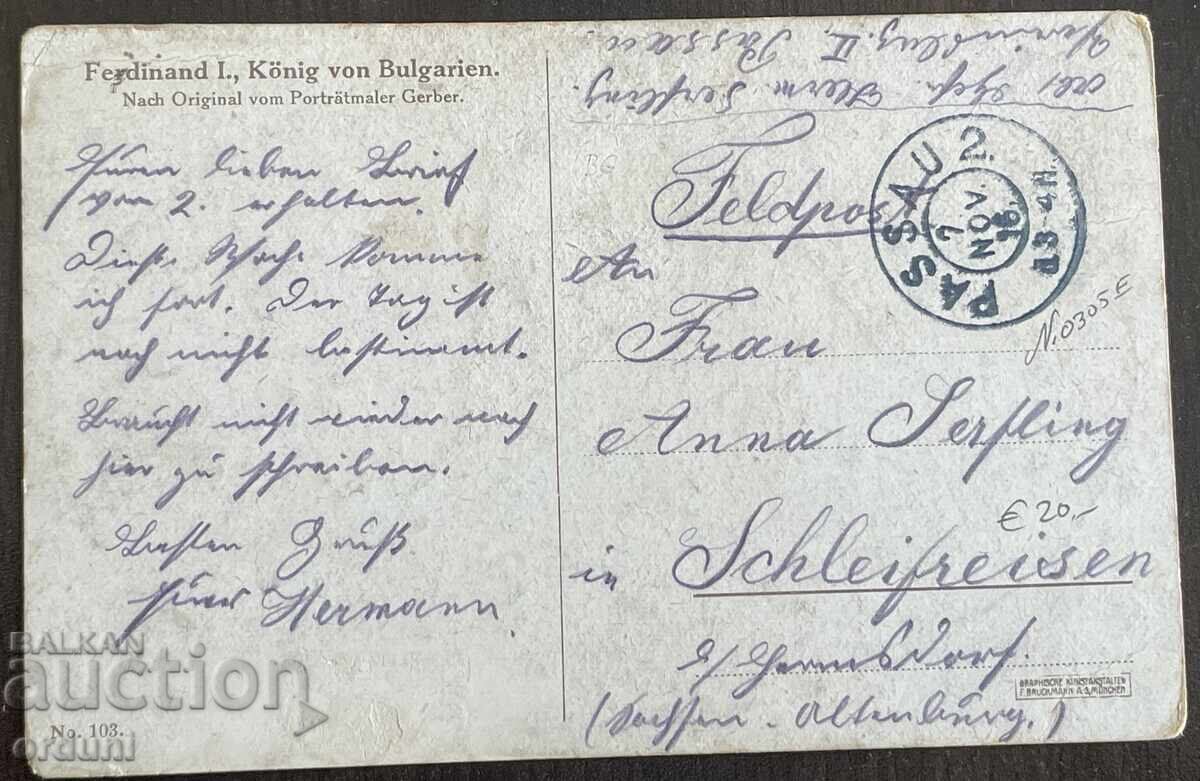 Ferdinand I., König von Bulgarien.
Nach Original vom Porträtmaler Gerber.
Euren lieben Brief
vom 2. erhalten.
Diese Woche komme
ich fort. Der Tag ist
noch nicht bestimmt.
Braucht nicht wieder nach
hier zu schreiben.
Besten Gruß
Euer Hermann
No. 103.
Herm. Serfling.
II Passau
Feldpos
An
Frau
Anna Serfling
in Schleifreisen
b/Hermsdorf.
(Sachsen-Altenburg.)
PASSAU 2.
7 NOV 16
N.0305E
€20,-
BG
GRAPHISCHE KUNSTANSTALTEN
F. BRUCKMANN A.G. MÜNCHEN
BALKAN
auction
orduni